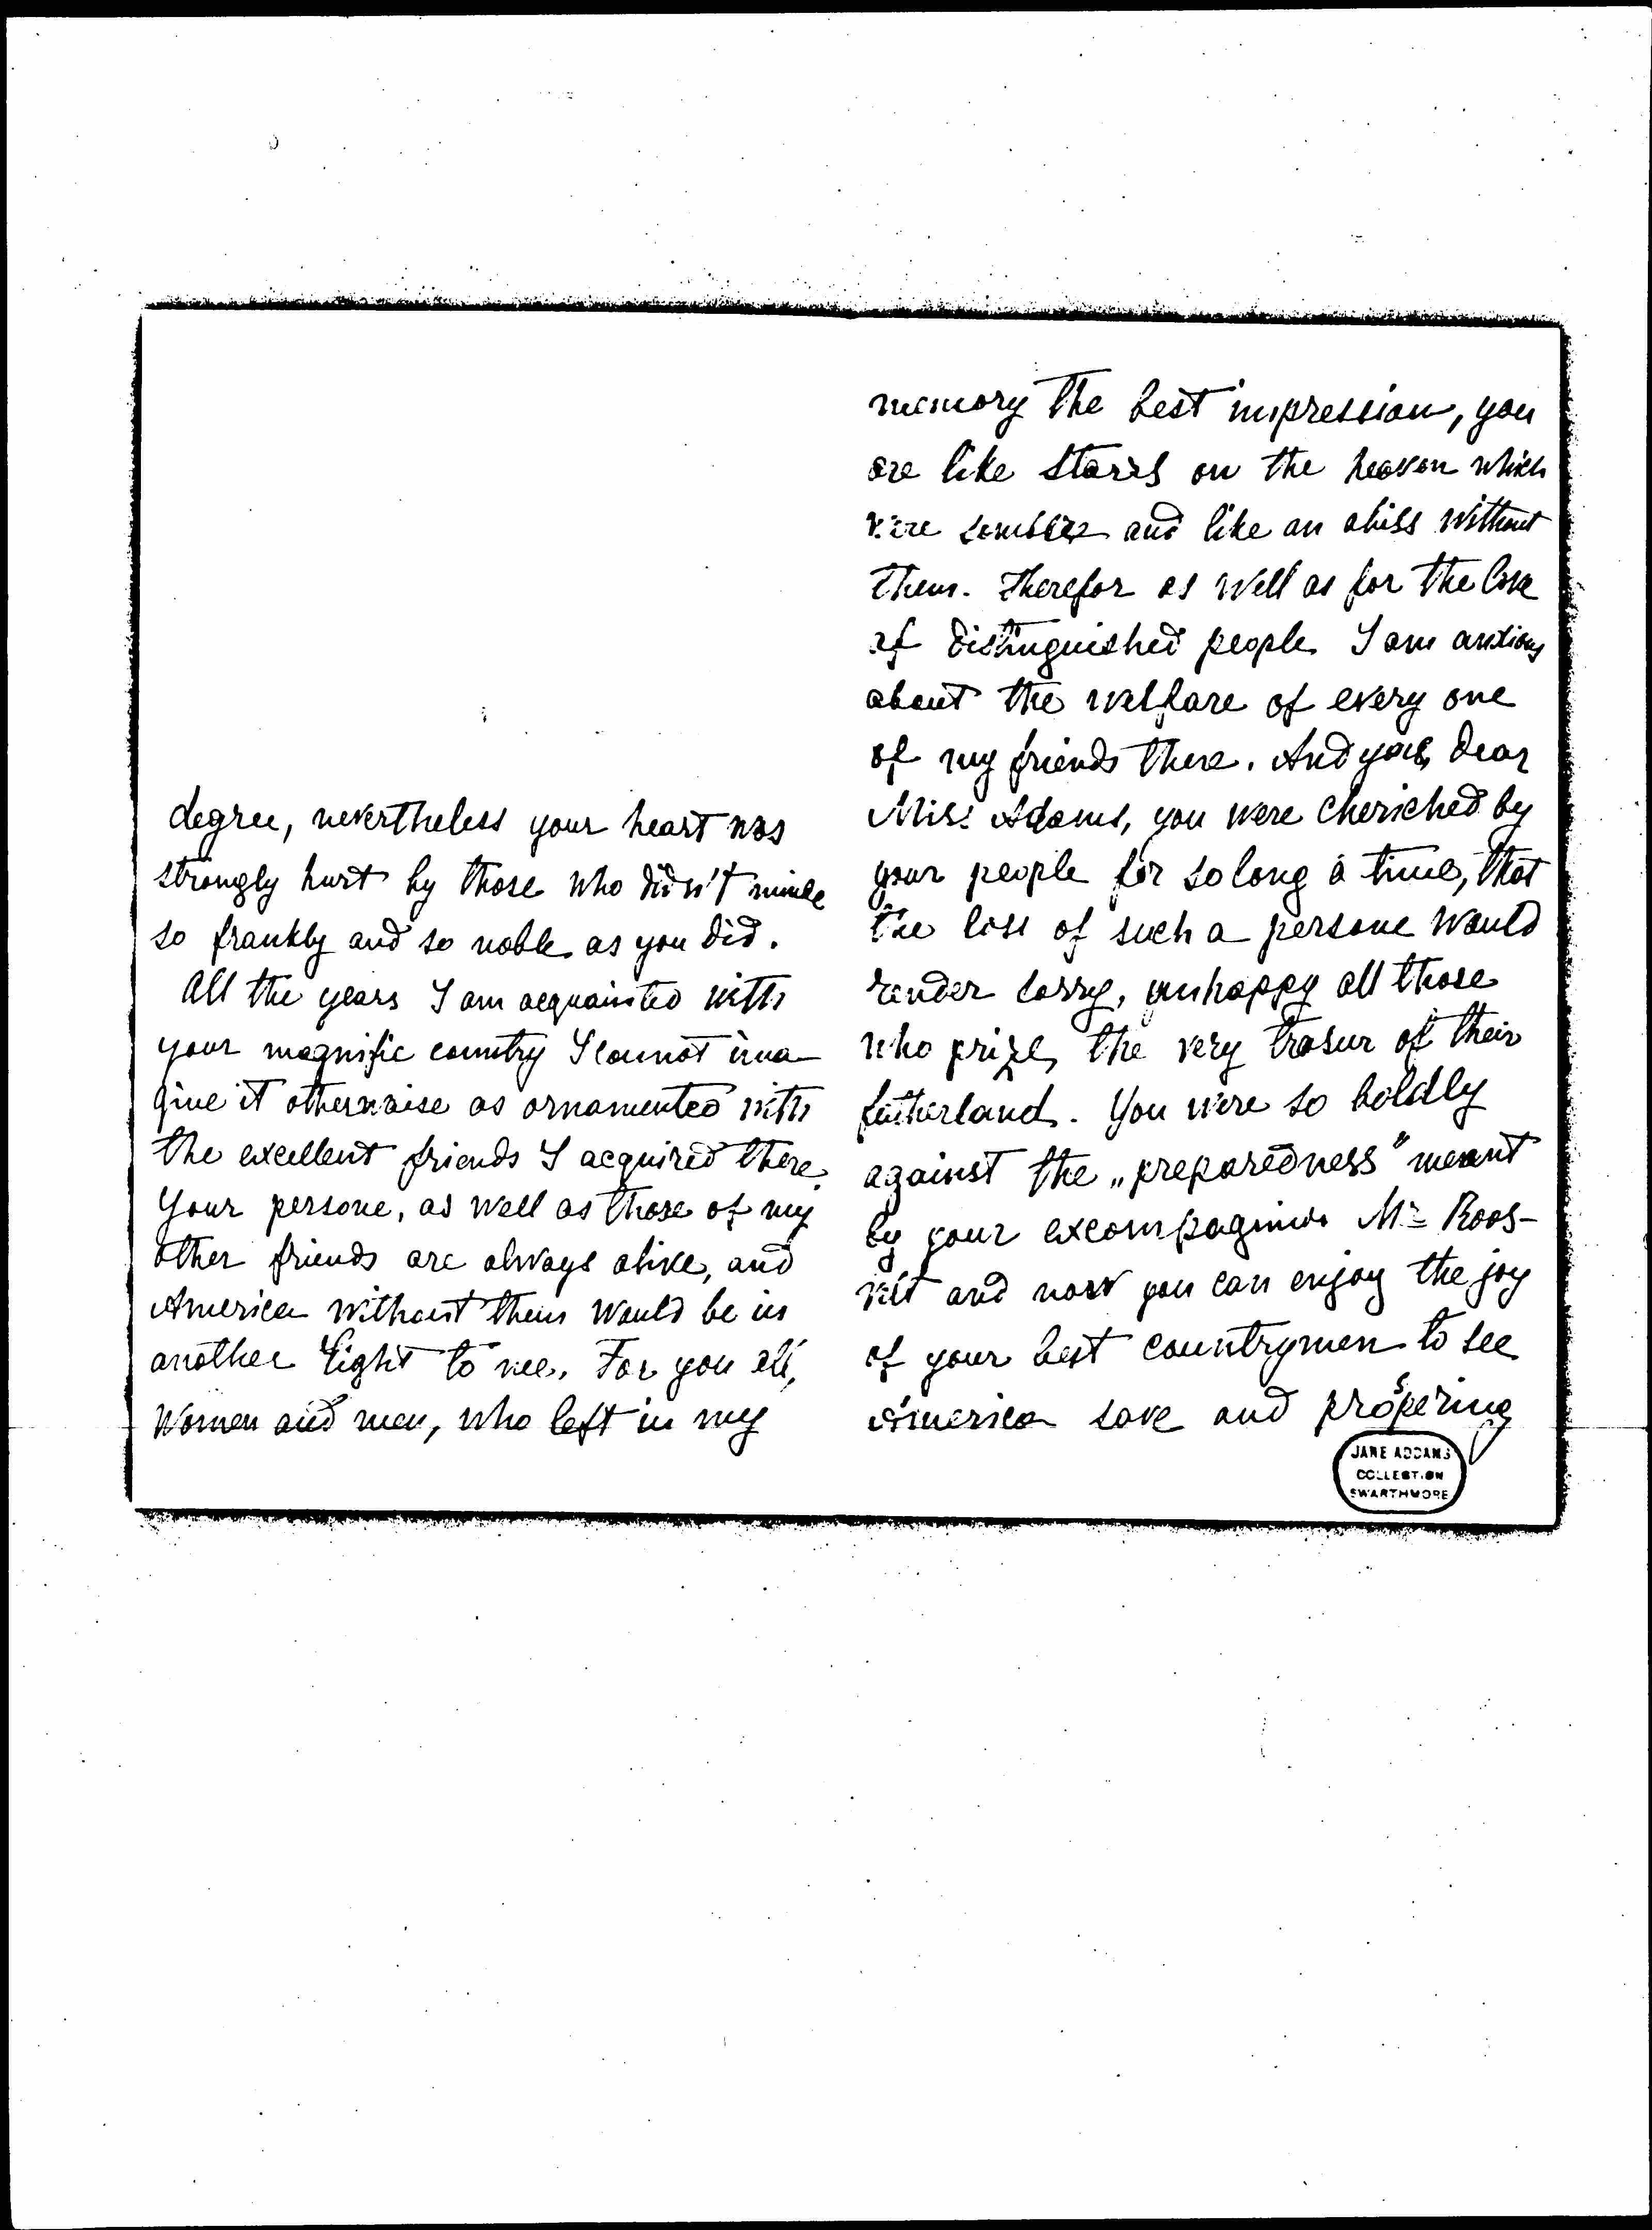 degree, nevertheless your heart was
strongly hurt by those who didn't
so frankly and so noble as you did.
All the years I am acquainted with
your magnific country I cannot ima-
gine it otherwaise as ornamented with
the excellent friends I acquired there.
Your persone, as well as those of my
other friends are always alive, and
America without them would be in
another light to me. For you all,
Women and men, who left in my
memory the best impression, you
are like starrs on the heaven which
were and like an abiss without
them. Therefor as well as for the love
of distinguished people I am anxious
about the welfare of every one
of my friends there. And you, dear
Miss Adams, you were cheriched by
your people for so long a time, that
the loss of such a persone would
render sorry, unhappy all those
who prize, the very trasur of their
fatherland. You were so boldly
against the „preparedness" meant
by your Mr Roos-
velt and now you can enjoy the joy
of your best countrymen to see
America save and prospering
JANE ADDAMS
COLLECTION
SWARTHMORE